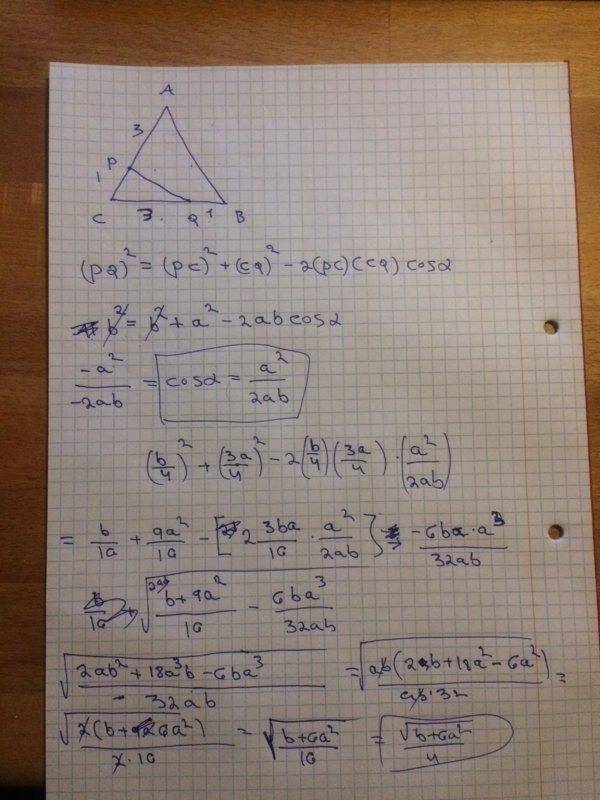 A
3
P
1
C 3. Q 1 B
(PQ)² = (PC)² + (CQ)² - 2(PC)(CQ) cosα
b² = b² + a² - 2ab cosα
-a²/-2ab = cosα = a²/2ab
(b/4)² + (3a/4)² - 2(b/4)(3a/4) · (a²/2ab)
= b/16 + 9a²/16 - [2 3ba/16 · a²/2ab] -6ba·a³/32ab
b/16 √ b+9a²/16 - 6ba³/32ab
√ 2ab²+18a³b-6ba³/32ab = √ ab(2b+18a²-6a²)/ab·32 =
√ 2(b+6a²)/2·16 = √ b+6a²/16 = √b+6a²/4